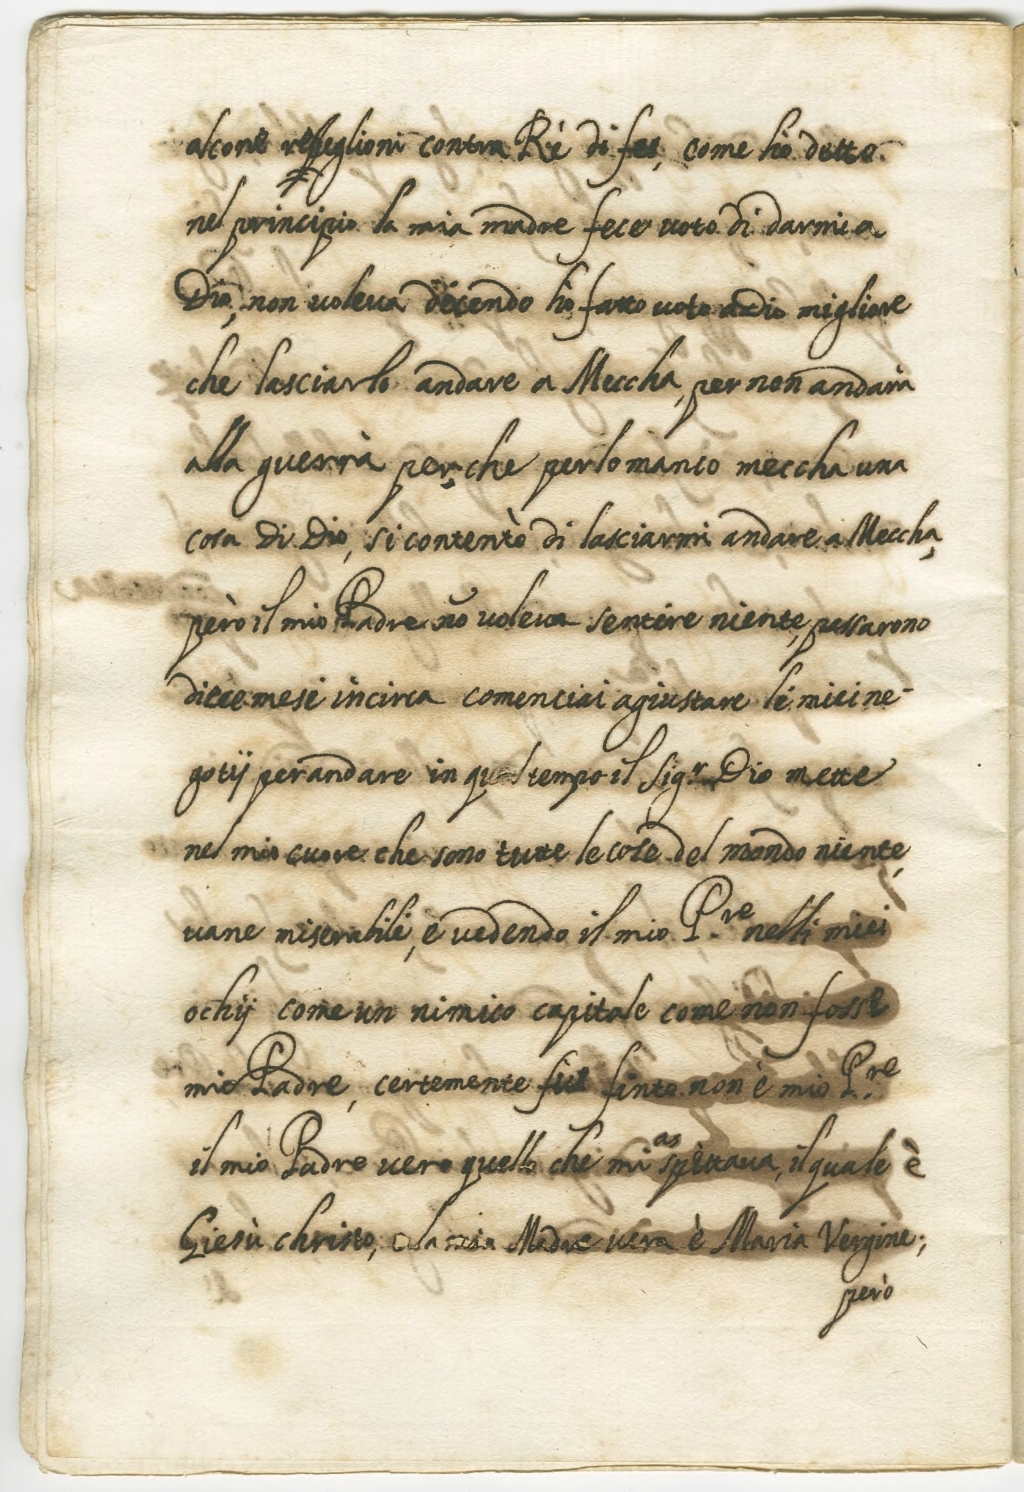 alcone rebeglioni contra Rè di fes, come hò detto
nel principio la mia madre fece uoto di darmi a
Dio, non uoleua dicendo hò fatto uoto a dio migliore
che lasciarlo andare a Meccha, per non andarà
alla guerrà perche perlomanco meccha una
cosa di Dio, si contentò di lasciarmi andare a Meccha,
però il mio Padre nõ uoleua sentire niente, passarono
diece mesi incirca comenciai agiustare li miei ne-
gotij per andare in quel tempo il Sigr. Dio mette
nel mio cuore che sono tutte le cose del mondo niente,
uane miserabili, è vedendo il mio P.re nelli miei
ochij come un nimico capitale come non fosse
mio Padre, certemente finto non è mio P.re
il mio Padre uero quello che mi aspettaua, il quale è
Giesù christo, o la mia Madre uera è Maria Vergine;
però